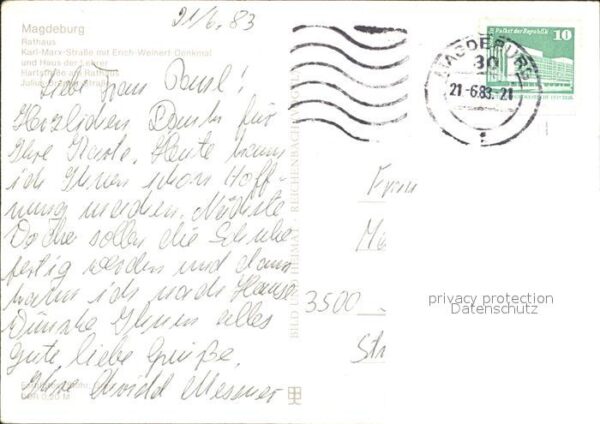 Magdeburg
Rathaus
Karl-Marx-Straße mit Erich-Weinert-Denkmal
und Haus der Lehrer
Hartstraße am Rathaus
21/6. 83
Liebe Frau
Herzlichen Dank für
Ihre Karte. Heute kann
ich Ihnen schon Hoff-
nung machen. Nächste
Woche sollen die Schuhe
fertig werden und dann
kann ich nach Hause
Wünsche Ihnen alles
gute liebe Grüße.
Ihre Messner
BILD UND HEIMAT REICHENBACH
Palast der Republik
10
MAGDEBURG
30
21-6.83. 21
Frau
3500
Str
privacy protection
Datenschutz